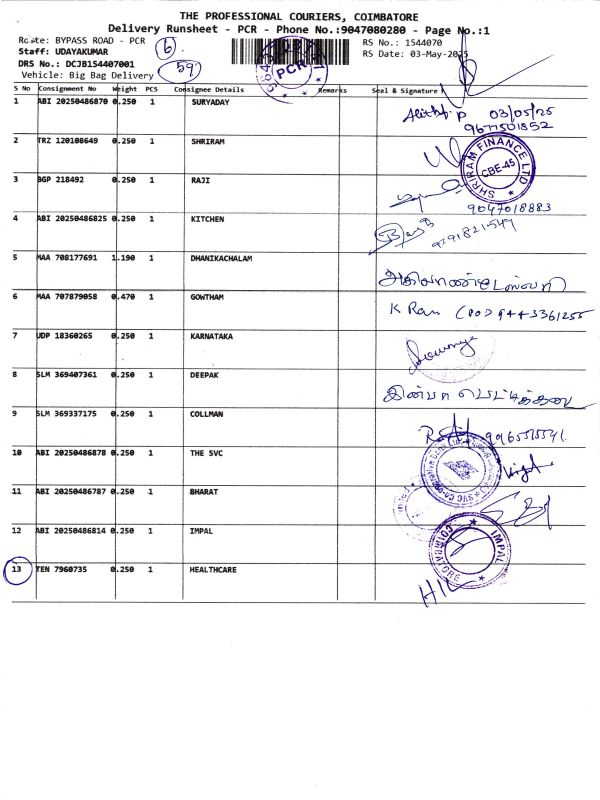 THE PROFESSIONAL COURIERS, COIMBATORE
Delivery Runsheet - PCR - Phone No.:9047080280 - Page No.:1
Route: BYPASS ROAD - PCR
RS No.: 1544070
Staff: UDAYAKUMAR
RS Date: 03-May-2025
DRS No.: DCJB154407001
Vehicle: Big Bag Delivery
6
59
PCR
S No Consignment No Weight PCS Consignee Details Remarks Seal & Signature
1 ABI 20250486870 0.250 1 SURYADAY
03/05/25
9677501852
2 TRZ 120108649 0.250 1 SHRIRAM
SHRIRAM FINANCE LTD
CBE-45
3 BGP 218492 0.250 1 RAJI
9047018883
4 ABI 20250486825 0.250 1 KITCHEN
9191821547
5 MAA 708177691 1.190 1 DHANIKACHALAM
6 MAA 707879058 0.470 1 GOWTHAM
K Ram (POD 9443361255
7 UDP 18360265 0.250 1 KARNATAKA
8 SLM 369407361 0.250 1 DEEPAK
9 SLM 369337175 0.250 1 COLLMAN
10 ABI 20250486878 0.250 1 THE SVC
11 ABI 20250486787 0.250 1 BHARAT
12 ABI 20250486814 0.250 1 IMPAL
IMPAL
COIMBATORE
13 TEN 7960735 0.250 1 HEALTHCARE